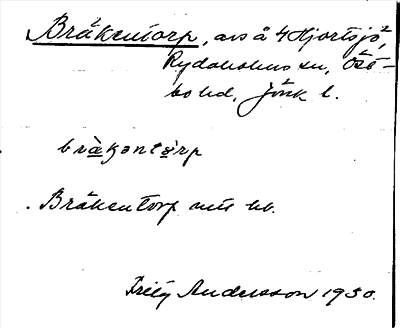 Bråkentorp, avs å 4 Hjortsjö,
Rydaholms sn, Öst-
bo hd, Jönk l.
bràkəntòrp
Bråkentorp hb.
Fritz Andersson 1930.